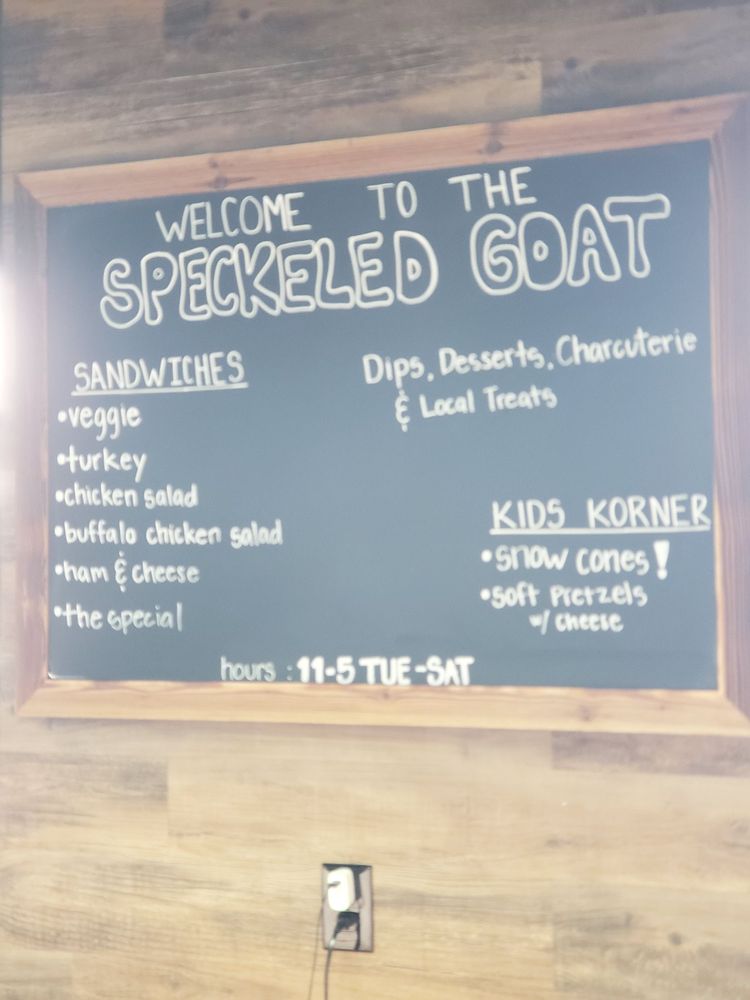 WELCOME TO THE
SPECKELED GOAT
SANDWICHES
•veggie
•turkey
•chicken salad
•buffalo chicken salad
•ham & cheese
•the special
Dips, Desserts, Charcuterie
& Local Treats
KIDS KORNER
•snow cones!
•soft Pretzels
w/ cheese
hours : 11-5 TUE-SAT